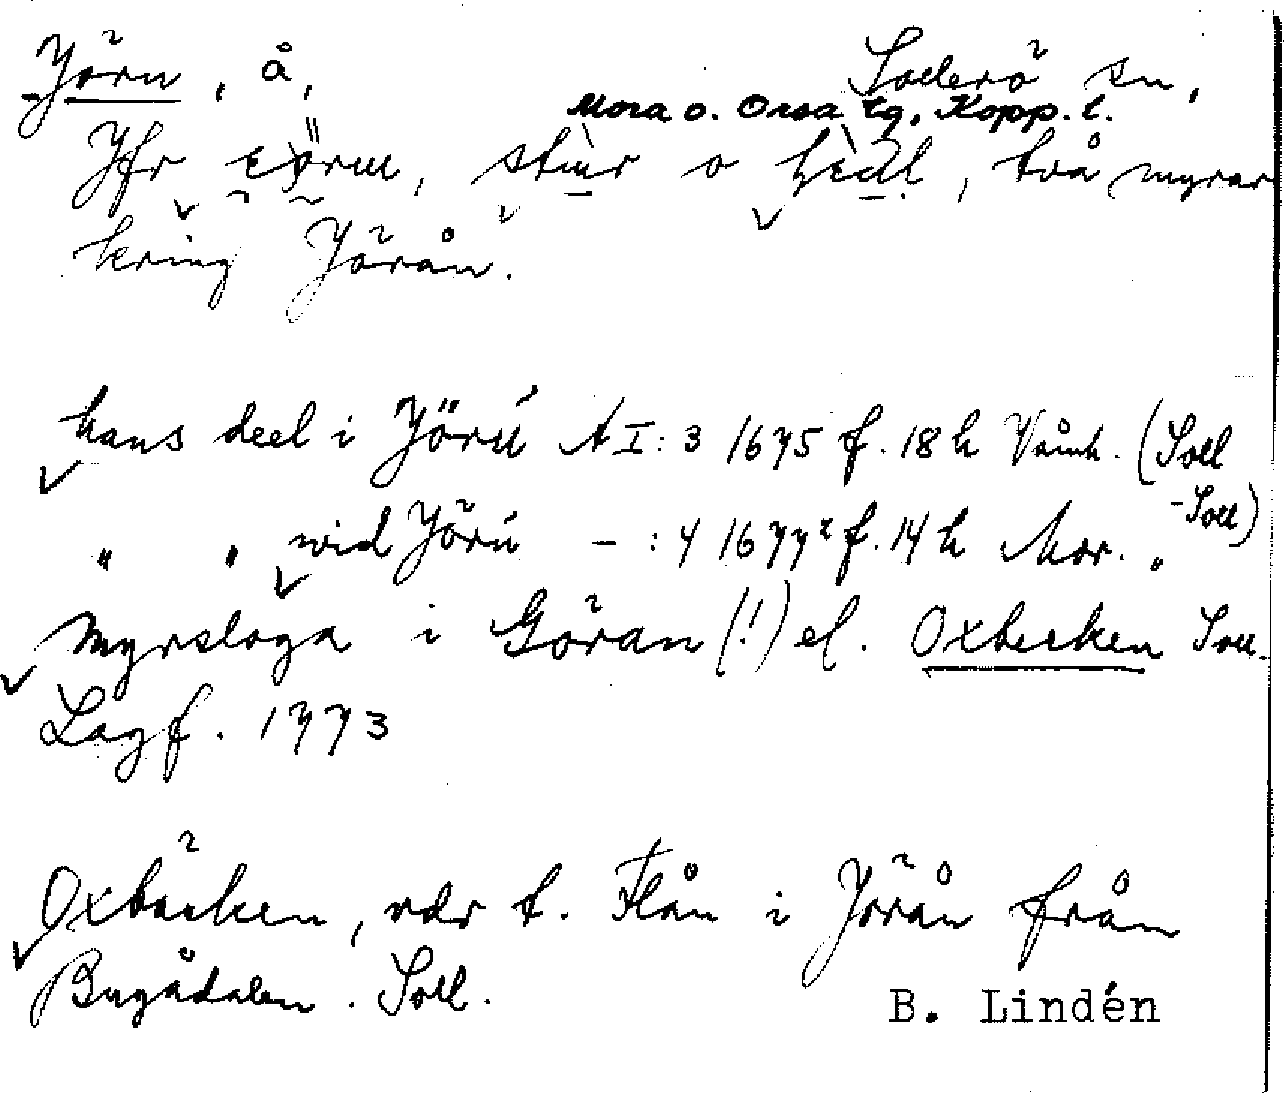 Jörn, å, Sollerö sn,
Mora o. Orsa tg, Kopp. l.
Jfr stùr o två myrar
kring Jörån.
hans deel i Jörú A I: 3 1675 f. 18 h Våmh. (Soll
" " wid Jörú - : 4 1677² f. 14 h Mor. " -Soll)
Myrsloga i Göran (!) el. Oxbecken Soll.
Lagf. 1773
Oxbäcken, vdr t. Flån i Jörån från
Bugådalen. Soll.
B. Lindén